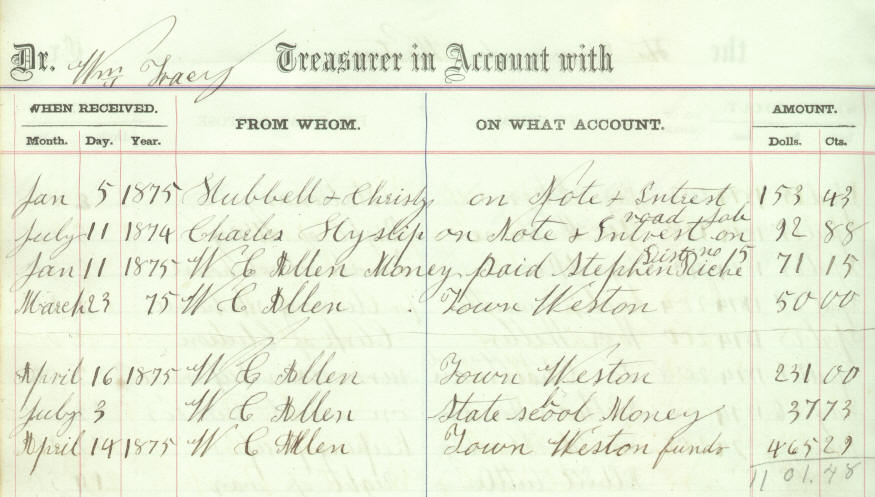 Dr. Wm Tracy Treasurer in Account with
WHEN RECEIVED. FROM WHOM. ON WHAT ACCOUNT. AMOUNT.
Month. Day. Year. Dolls. Cts.
Jan 5 1875 Hubbell & Christy on Note & Intrest 153 43
road Job
July 11 1874 Charles Hyslip on Note & Intrest on 92 88
Dist no 5
Jan 11 1875 W C Allen Money paid Stephen Riche 71 15
March 23 75 W C Allen Town Weston 50 00
April 16 1875 W C Allen Town Weston 231 00
July 3 W C Allen State scool Money 37 73
April 14 1875 W C Allen Town Weston funds 465 29
1101.48